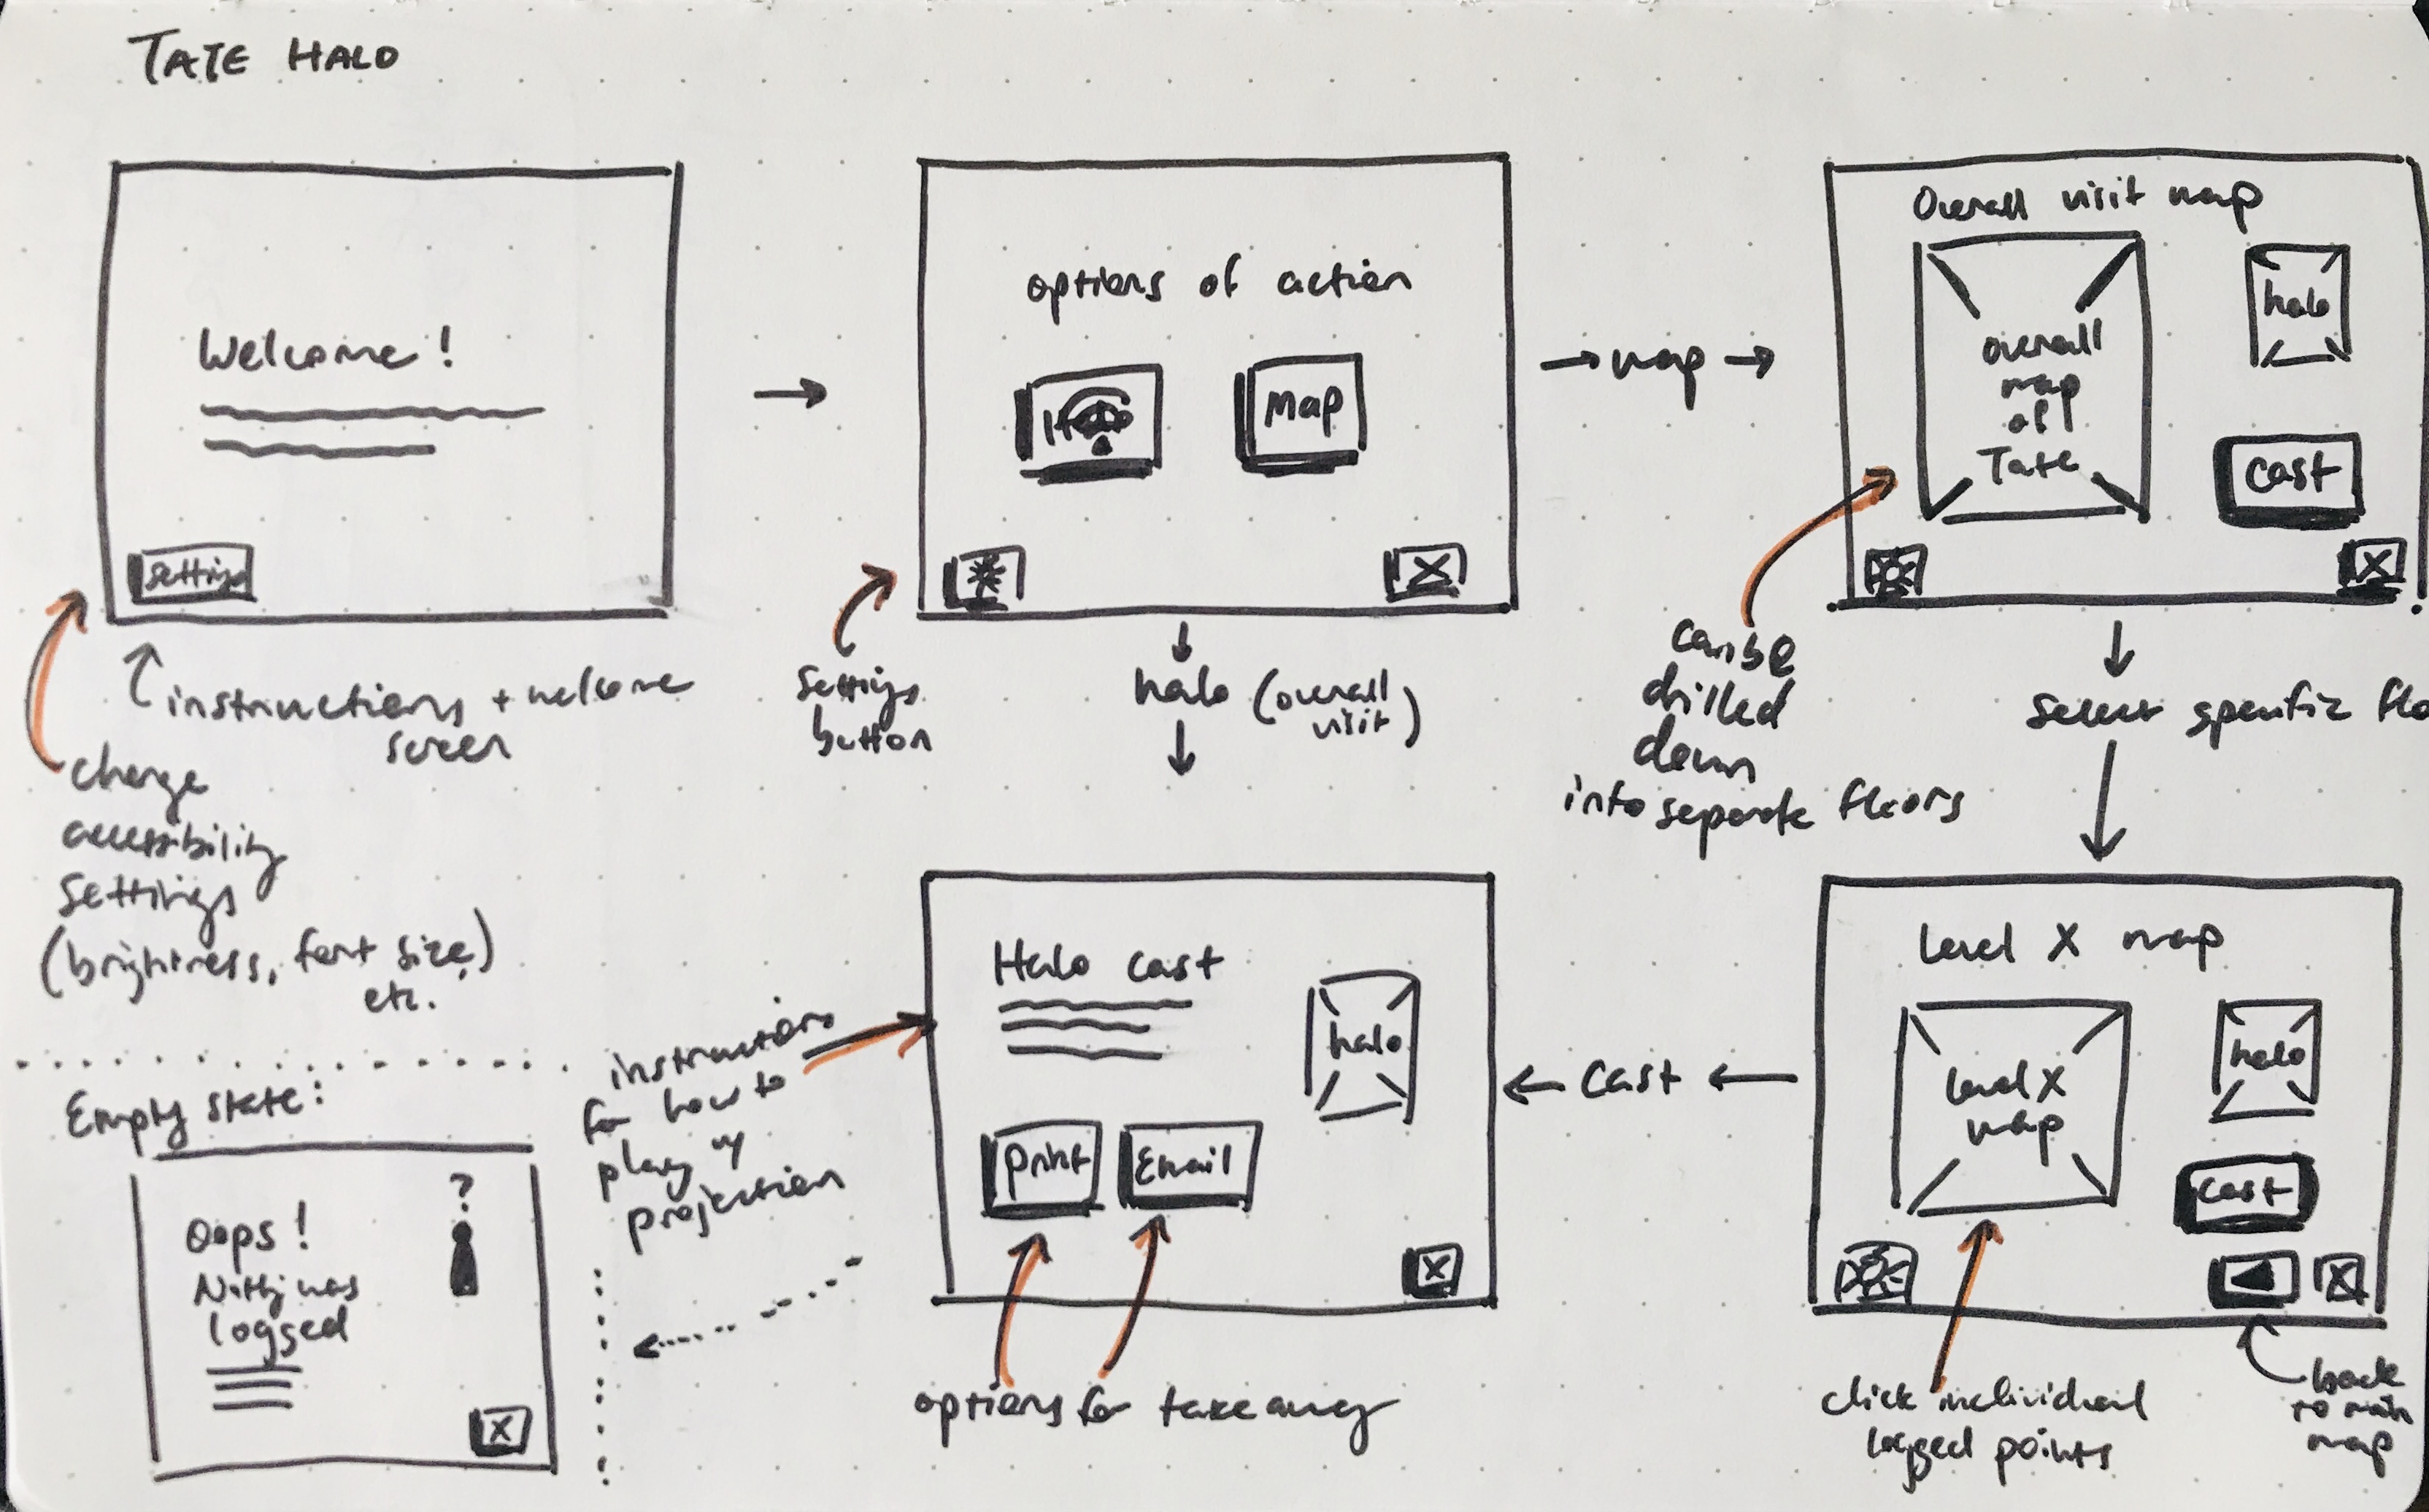 TATE HALO
Welcome!
Settings
instructions + welcome
screen
change
accessibility
settings
(brightness, font size,)
etc.
options of action
Map
X
settings
button
halo (overall
visit)
→ map →
Overall visit map
overall
map
of
Tate
halo
Cast
X
can be
drilled
down
into separate floors
Select specific flo
Level X map
level X
map
halo
Cast
X
click individual
logged points
back
to main
map
← Cast ←
Halo cast
halo
Print
Email
X
instructions
for how to
play w/
projection
options for takeaway
Empty state:
Oops!
?
Nothing was
logged
X